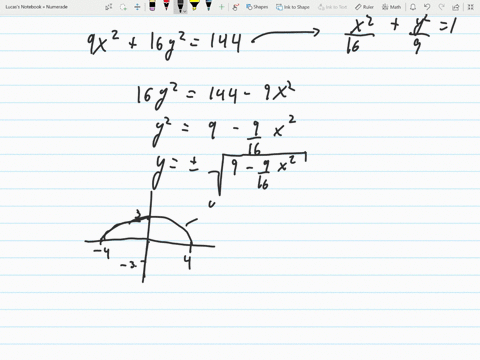 Lucas's Notebook » Numerade
Eraser
Shapes
Ink to Shape
Ink to Text
9x² + 16y² = 144 → x²/16 + y²/9 = 1
16y² = 144 - 9x²
y² = 9 - 9/16 x²
y = ± √(9 - 9/16 x²)
3
-4
4